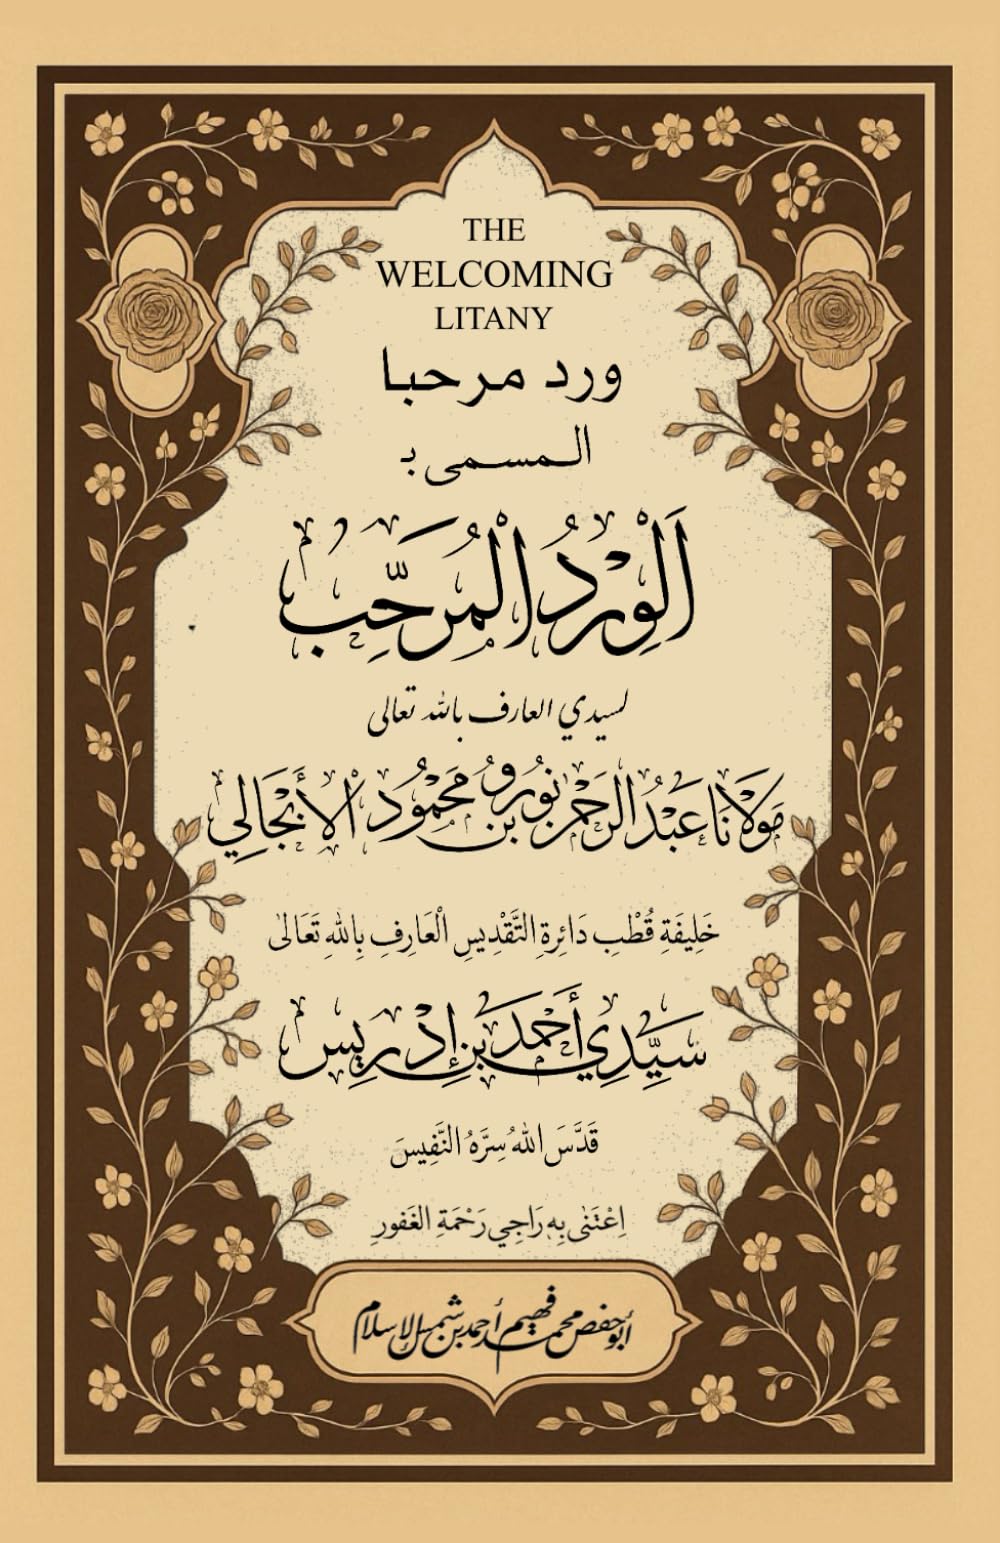 THE
WELCOMING
LITANY
ورد مرحبا
المسمى بـ
اَلْوِرْدُ الْمُرَحِّب
لسيدي العارف بالله تعالى
مَوْلَانَا عَبْدُ الرَّحْمٰن نُورُو بن مَحْمُود الْأَبْجَالِي
خَلِيفَةِ قُطْبِ دَائِرَةِ التَّقْدِيسِ الْعَارِفِ بِاللهِ تَعَالىٰ
سَيِّدِي أَحْمَد بَنِ إِدْرِيس
قَدَّسَ اللهُ سِرَّهُ النَّفِيسَ
اِعْتَنٰى بِهٖ رَاجِي رَحْمَةِ الغَفورِ
أبو حفص محمد فهيم أحمد بن شمس الإسلام